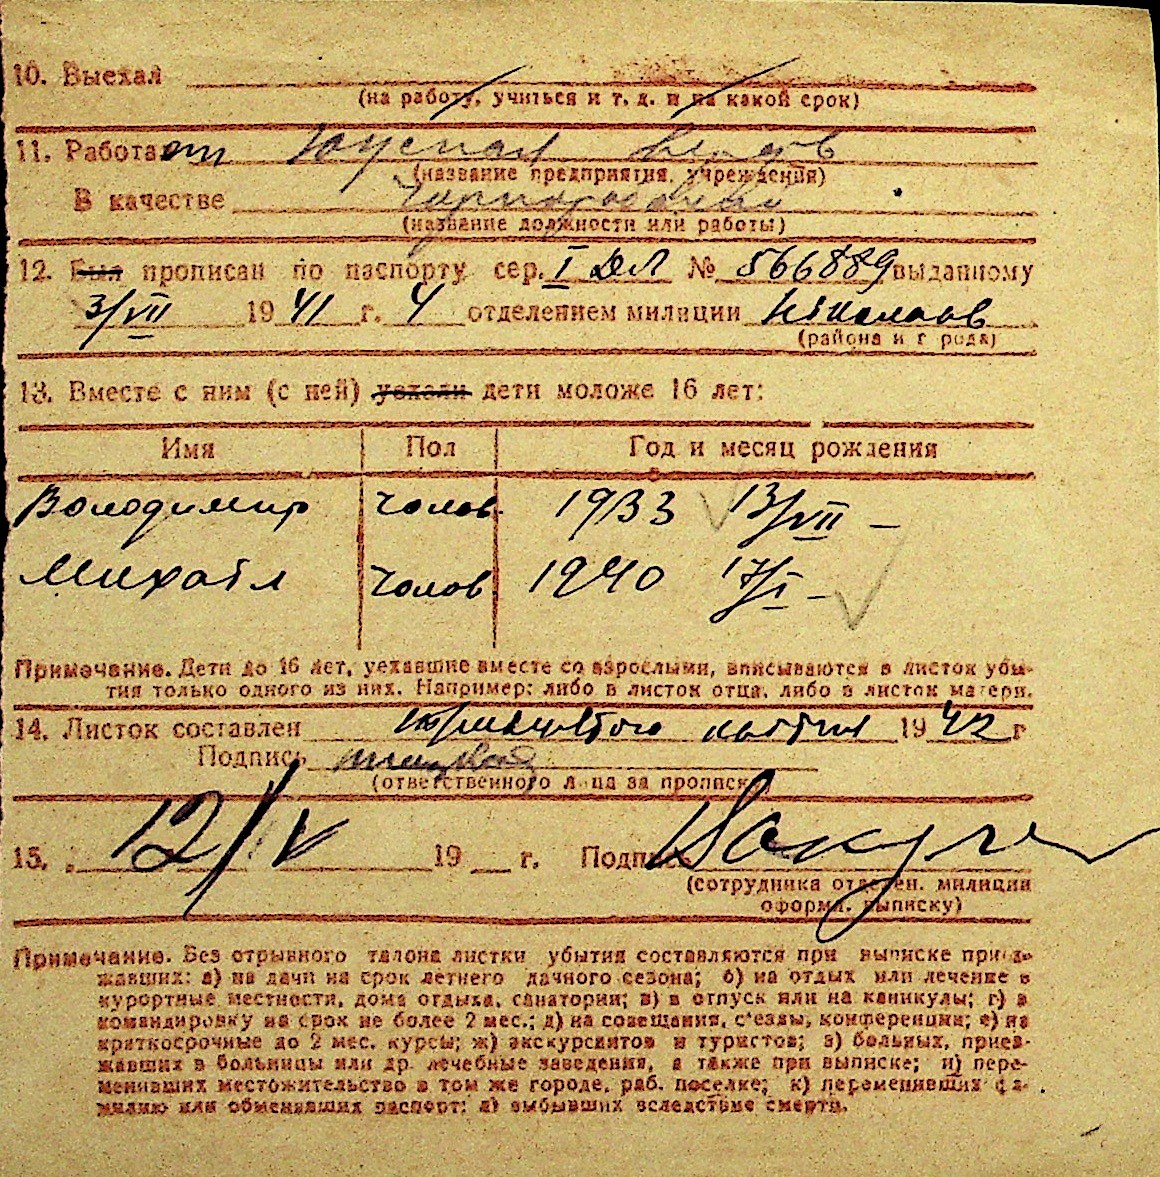 10. Выехал
(на работу, учиться и т. д. и на какой срок)
11. Работает
(название предприятия, учреждения)
В качестве
(название должности или работы)
12. Был прописан по паспорту сер. I ДЛ № 566889 выданному
3/VII 1941 г. 4 отделением милиции
(района и города)
13. Вместе с ним (с ней) уехали дети моложе 16 лет:
Имя Пол Год и месяц рождения
Володимир чолов. 1933 13/VII –
Михайл чолов 1940 17/I –
Примечание. Дети до 16 лет, уехавшие вместе со взрослыми, вписываются в листок убы-
тия только одного из них. Например: либо в листок отца, либо в листок матери.
14. Листок составлен 1942 г
Подпись
(ответственного лица за прописку)
15. 12/V 19 г. Подпись
(сотрудника отделен. милиции
оформл. выписку)
Примечание. Без отрывного талона листки убытия составляются при выписке приез-
жавших: а) на дачи на срок летнего дачного сезона; б) на отдых или лечение в
курортные местности, дома отдыха, санатории; в) в отпуск или на каникулы; г) в
командировку на срок не более 2 мес.; д) на совещания, с'езды, конференции; е) на
краткосрочные до 2 мес. курсы; ж) экскурсантов и туристов; з) больных, приез-
жавших в больницы или др. лечебные заведения, а также при выписке; и) пере-
менивших местожительство в том же городе, раб. поселке; к) переменивших фа-
милию или обменявших паспорт; л) выбывших вследствие смерти.